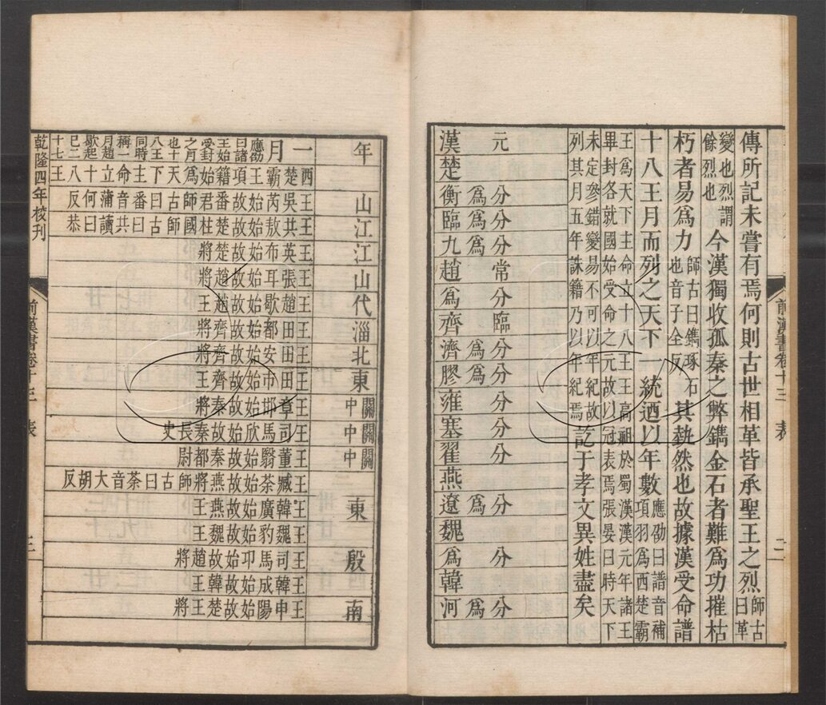 傳所記未嘗有焉何則古世相革皆承聖王之烈師古曰革
變也烈謂餘烈也今漢獨收孤秦之弊鐫金石者難為功摧枯
朽者易為力師古曰鐫琢石也音子全反其埶然也故據漢受命譜
十八王月而列之天下一統迺以年數應劭曰譜音補項羽為西楚霸
王為天下主命立十八王王高祖於蜀漢漢元年諸王畢封各就國始受命之元故以冠表焉張晏曰時天下
未定參錯變易不可以年紀故列其月五年誅籍乃以年紀焉訖于孝文異姓盡矣
元漢
楚
分為衡
分為臨
分為九
常趙
分為
臨齊
分為濟
分為膠
分雍
分塞
分翟
燕
分為遼
魏
分為
韓
分為河
前漢書卷十三 表 二
年一月應劭曰諸王始受封之月也十八王同時稱一月趙歇起已二十七月
西楚霸王項籍始為天下主命立十八王
山王吳芮始故番君師古曰番音蒲何反
江王共敖始故楚柱國師古曰共讀曰恭
江王英布始故楚將
山王張耳始故趙將
代王趙歇始故趙王
淄王田都始故齊將
北王田安始故齊將
東王田市始故齊王
關中王章邯始故秦將
關中王司馬欣始故秦長史
關中王董翳始故秦都尉
王臧荼始故燕將師古曰荼音大胡反
東王韓廣始故燕王
王魏豹始故魏王
殷王司馬卬始故趙將
王韓成始故韓王
南王申陽始故楚將
乾隆四年校刊 前漢書卷十三 表 三